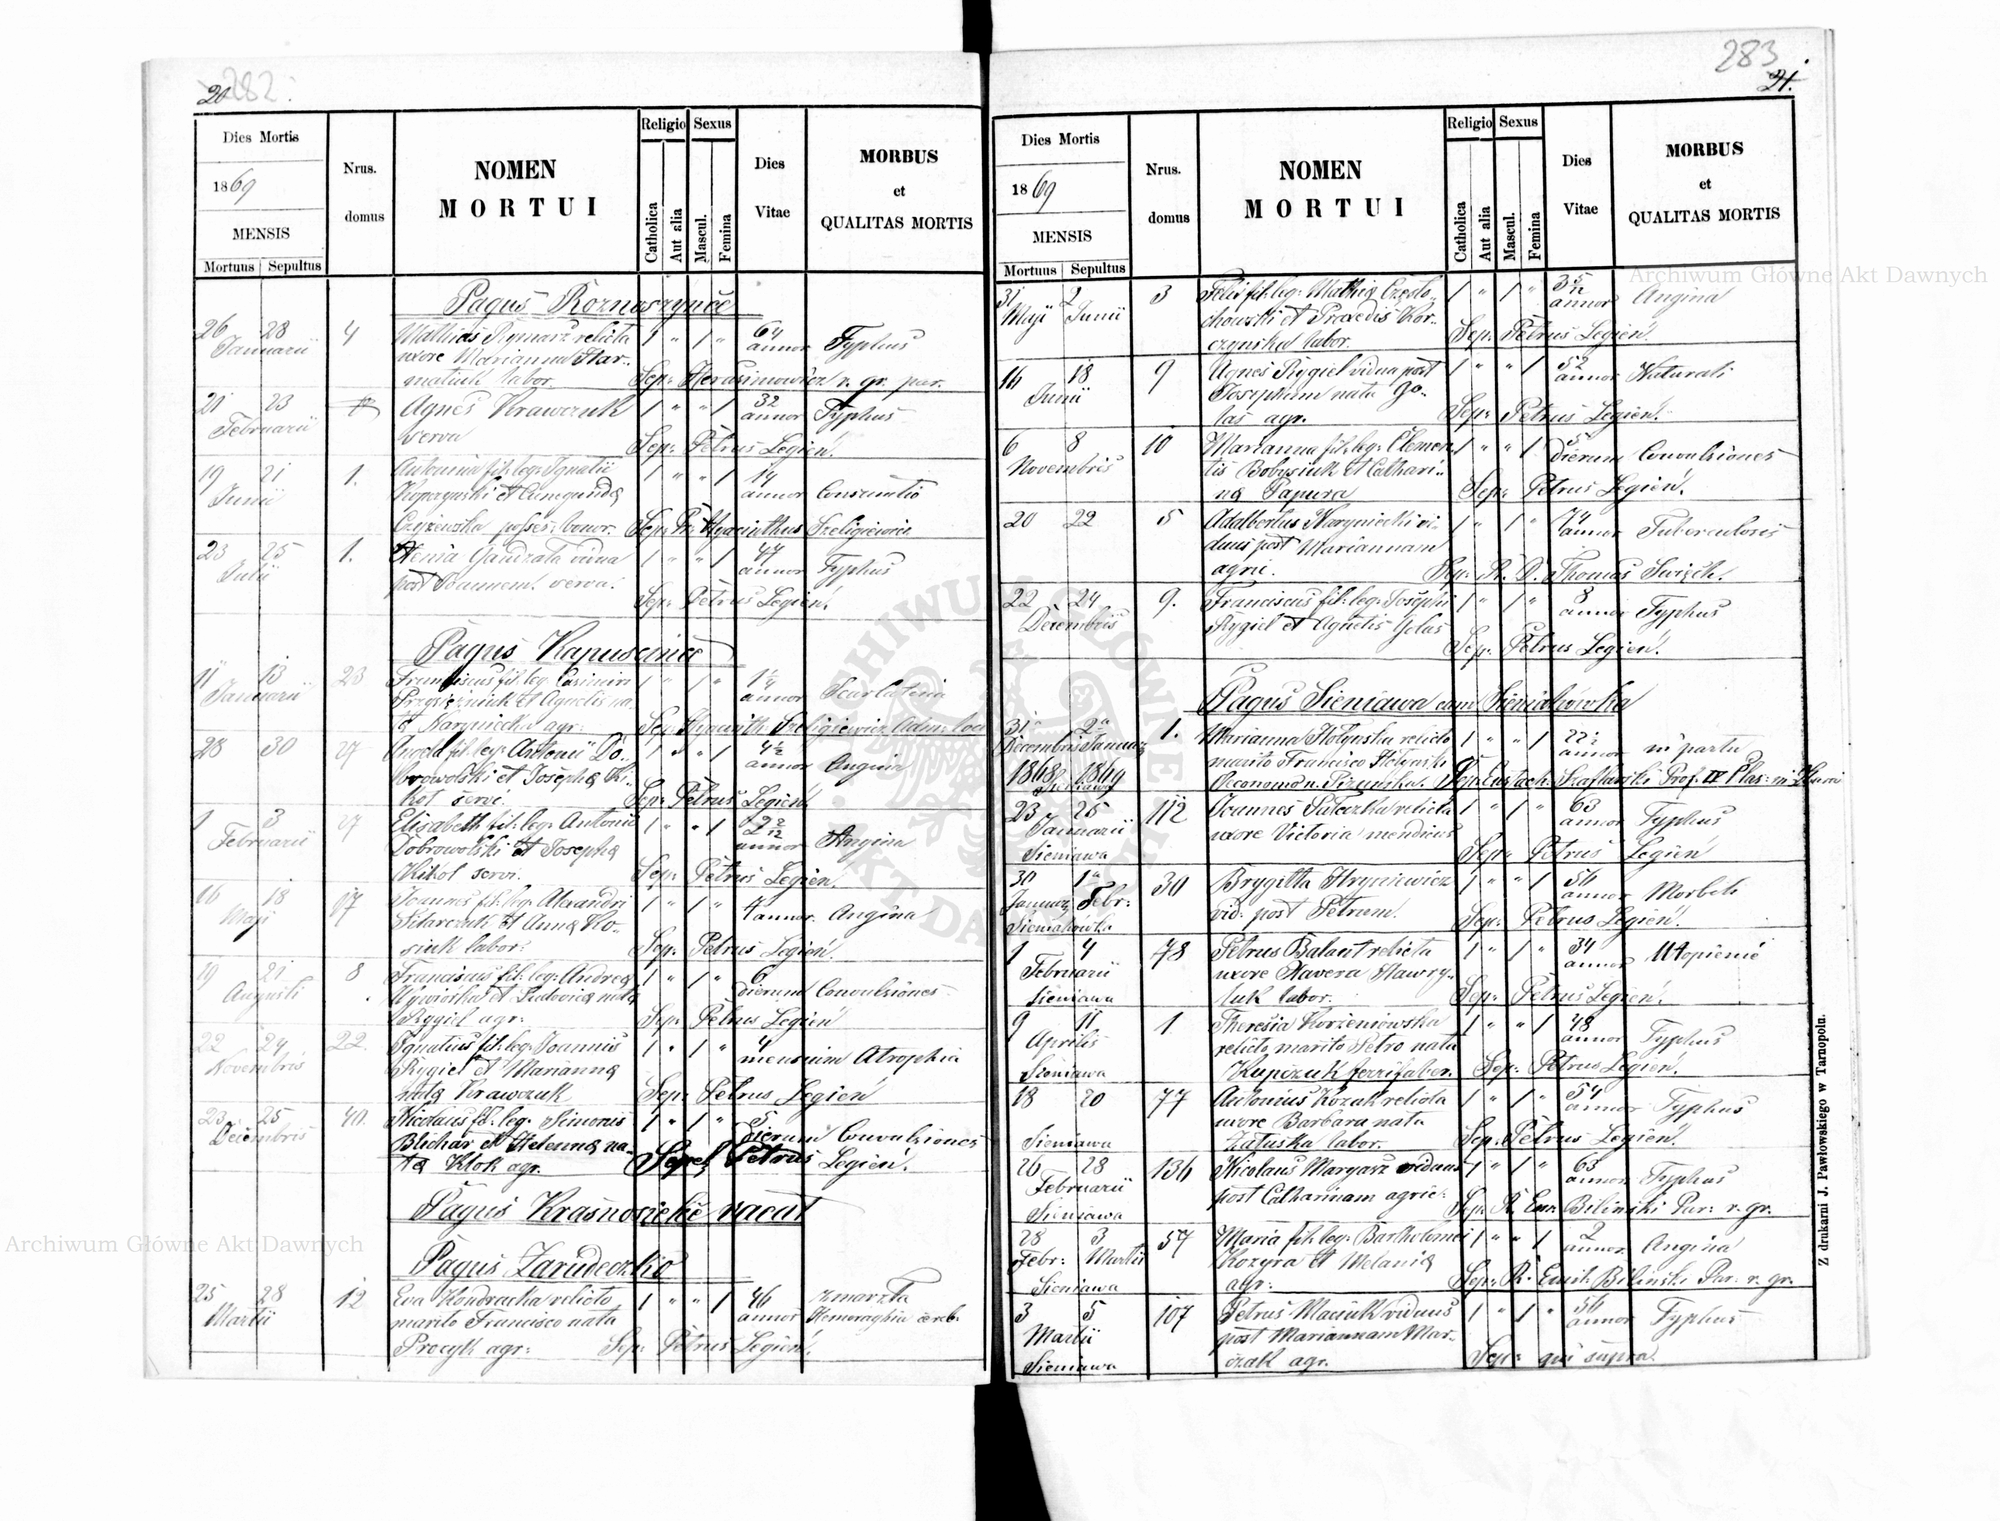 20 282.
Dies Mortis
1869
MENSIS
Mortuus Sepultus
Nrus. domus
NOMEN
MORTUI
Religio
Catholica
Aut alia
Sexus
Mascul.
Femina
Dies
Vitae
MORBUS
et
QUALITAS MORTIS
26 28 4 Mathias Rymarz relicta 1 " 1 " 64
Januarii uxore Marianna Har- annor Typhus
matiuk labor. Sep: Herasimowicz r. gr. par.
21 23 Agnes Krawczuk 1 " " 1 32
Februarii serva annor Typhus
Sep: Petrus Legień.
19 21 1. Antonina fil: leg: Ignatii 1 " " 1 14
Junii et Cunegunda annor Consumtio
posses: bonor. Sep: Pr: Hyacinthus Szeligiewicz
23 25 1. Xenia vidua 1 " " 1 47
Julii post Joannem. serva. annor Typhus
Sep: Petrus Legień.
11 13 23 Franciscus fil: leg: Casimiri 1 " 1 "
Januarii et Agnetis na- annor Scarlatina
ta Karynicka agr: Sep: Hyacinth Szeligiewicz Adm: loci
28 30 27 fil: leg: Antonii Do- 1 " " 1 4½
browolski et Josepha Ki- annor Angina
kot servi. Sep: Petrus Legień.
1 3 27 Elisabeth fil: leg: Antonii 1 " " 1 2 2/12
Februarii Dobrowolski et Josepha annor Angina
Kikot servi. Sep: Petrus Legień.
16 18 17 Joannes fil: leg: Alexandri 1 " 1 "
Maji et Anna Ko- annor. Angina
siuk labor: Sep: Petrus Legień.
19 21 8 Franciscus fil: leg: Andrea 1 " 1 " 6
Augusti et Ludovica nata dierum Convulsiones
Rygiel agr: Sep: Petrus Legień
22 24 22. Ignatius fil: leg: Joannis 1 " 1 " 4
Novembris Rygiel et Marianna mensium Atrophia
nata Krawczuk Sep: Petrus Legień
23 25 40. Nicolaus fil: leg: Simonis 1 " 1 " 5
Decembris Blichar et Helenna na- dierum Convulsiones
ta Klok agr. Sepel: Petrus Legień.
Pagus Krasnosielce vacat
Pagus Zarudeczko
25 28 12 Eva Kondracka relicto 1 " " 1 46 zmarzła
Martii marito Francisco nata annor Hemoraghia cereb.
Procyk agr: Sep: Petrus Legień.
283
21.
Dies Mortis
1869
MENSIS
Mortuus Sepultus
Nrus.
domus
NOMEN
MORTUI
Religio
Catholica
Aut alia
Sexus
Mascul.
Femina
Dies
Vitae
MORBUS
et
QUALITAS MORTIS
31 2 3 fil: leg: Mathia Często- 1 " 1 " 3 5/12
Maji Junii chowski et Praxedis Kor- annor Angina
czynska labor. Sep: Petrus Legień.
16 18 9 Agnes Rygiel vidua post 1 " " 1 52
Junii Josephum nata Go- annor Naturali
las agr. Sep: Petrus Legień.
6 8 10 Marianna fil: leg: Clemen- 1 " " 1 5
Novembris tis et Cathari- dierum Convulsiones
na Papura Sep: Petrus Legień.
20 22 5 Adalbertus Karyniecki vi- 1 " 1 " 74
duus post Mariannam annor Tuberculosis
agric. Sep: R. D. Thomas
22 24 9. Franciscus fil: leg: Josephi 1 " 1 " 8
Decembris Rygiel et Agnetis Golas annor Typhus
Sep: Petrus Legień.
Pagus Sieniawa cum Sieniakówka
31 2a 1. Marianna Hołynska relicto 1 " " 1 22½
Decembris Januar marito Francisco Hołynski annor in partu
1868 1869
Sieniawa
23 25 112 Joannes relicta 1 " 1 " 63
Januarii uxore Victoria mendicus annor Typhus
Sieniawa Sep: Petrus Legień
30 1a 30 Brygitta Hryniewicz 1 " " 1 56
Januar Febr: vid: post Petrum. annor Morbok
Sieniakówka Sep: Petrus Legień.
1 4 78 Petrus Balant relicta 1 " 1 " 34
Februarii uxore Xavera Hawry- annor Utopienie
Sieniawa luk labor. Sep: Petrus Legień.
9 11 1 Theresia Korzeniowska 1 " " 1 48
Aprilis relicto marito Petro nata annor Typhus
Sieniawa Kupczuk ferrifaber. Sep: Petrus Legień.
18 20 77 Antonius Kozak relicta 1 " 1 " 54
uxore Barbara nata annor Typhus
Sieniawa Załuska labor. Sep: Petrus Legień.
26 28 136 Nicolaus Margasz viduus 1 " 1 " 63
Februarii post Catharinam agric: annor Typhus
Sieniawa Sep: R. Em: Biliński Par: r. gr.
28 3 57 Maria fil: leg: Bartholomei 1 " " 1 2
Febr: Martii Kozyra et Melania annor. Angina
Sieniawa agr: Sep: R. Emil: Biliński Par: r. gr.
3 5 107 Petrus Maciuk viduus 1 " 1 " 56
Martii post Mariannam Mar- annor Typhus
Sieniawa czak agr. Sep: qui supra.
Z drukarni J. Pawłowskiego w Tarnopolu.
Archiwum Główne Akt Dawnych
Archiwum Główne Akt Dawnych
ARCHIWUM GŁÓWNE AKT DAWNYCH